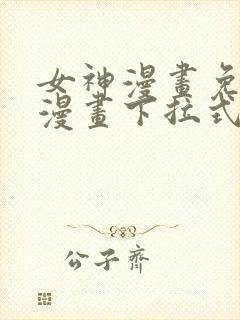 女神漫畫免
漫畫下拉式
公子齊